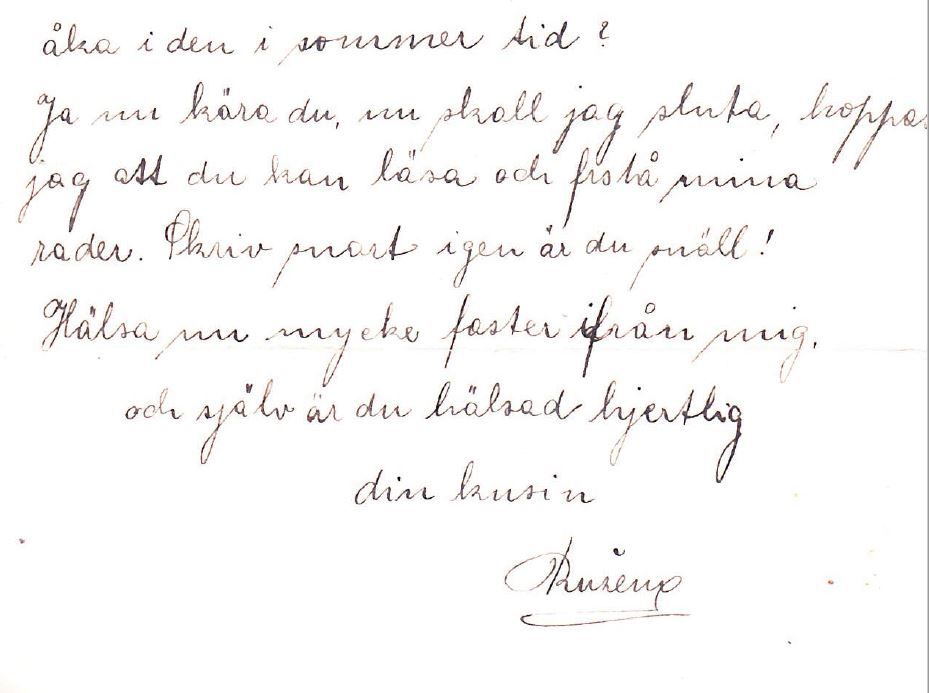 åka i den i sommer tid?
Ja nu kära du, nu skall jag sluta, hoppas
jag att du kan läsa och frstå mina
rader. Skriv snart igen är du snäll!
Hälsa nu mycke faster ifrån mig,
och själv är du hälsad hjertlig
din kusin
Ružena